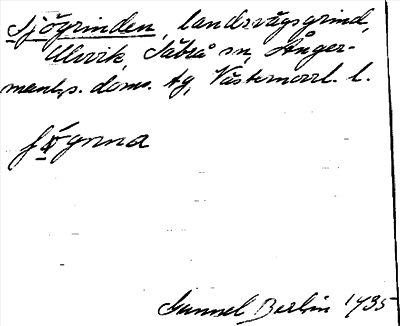 Sjögrinden, landsvägsgrind,
Ulvvik, Säbrå sn, Ånger-
manl.s. doms. tg, Västernorrl. l.
Gunnel Berlin 1935